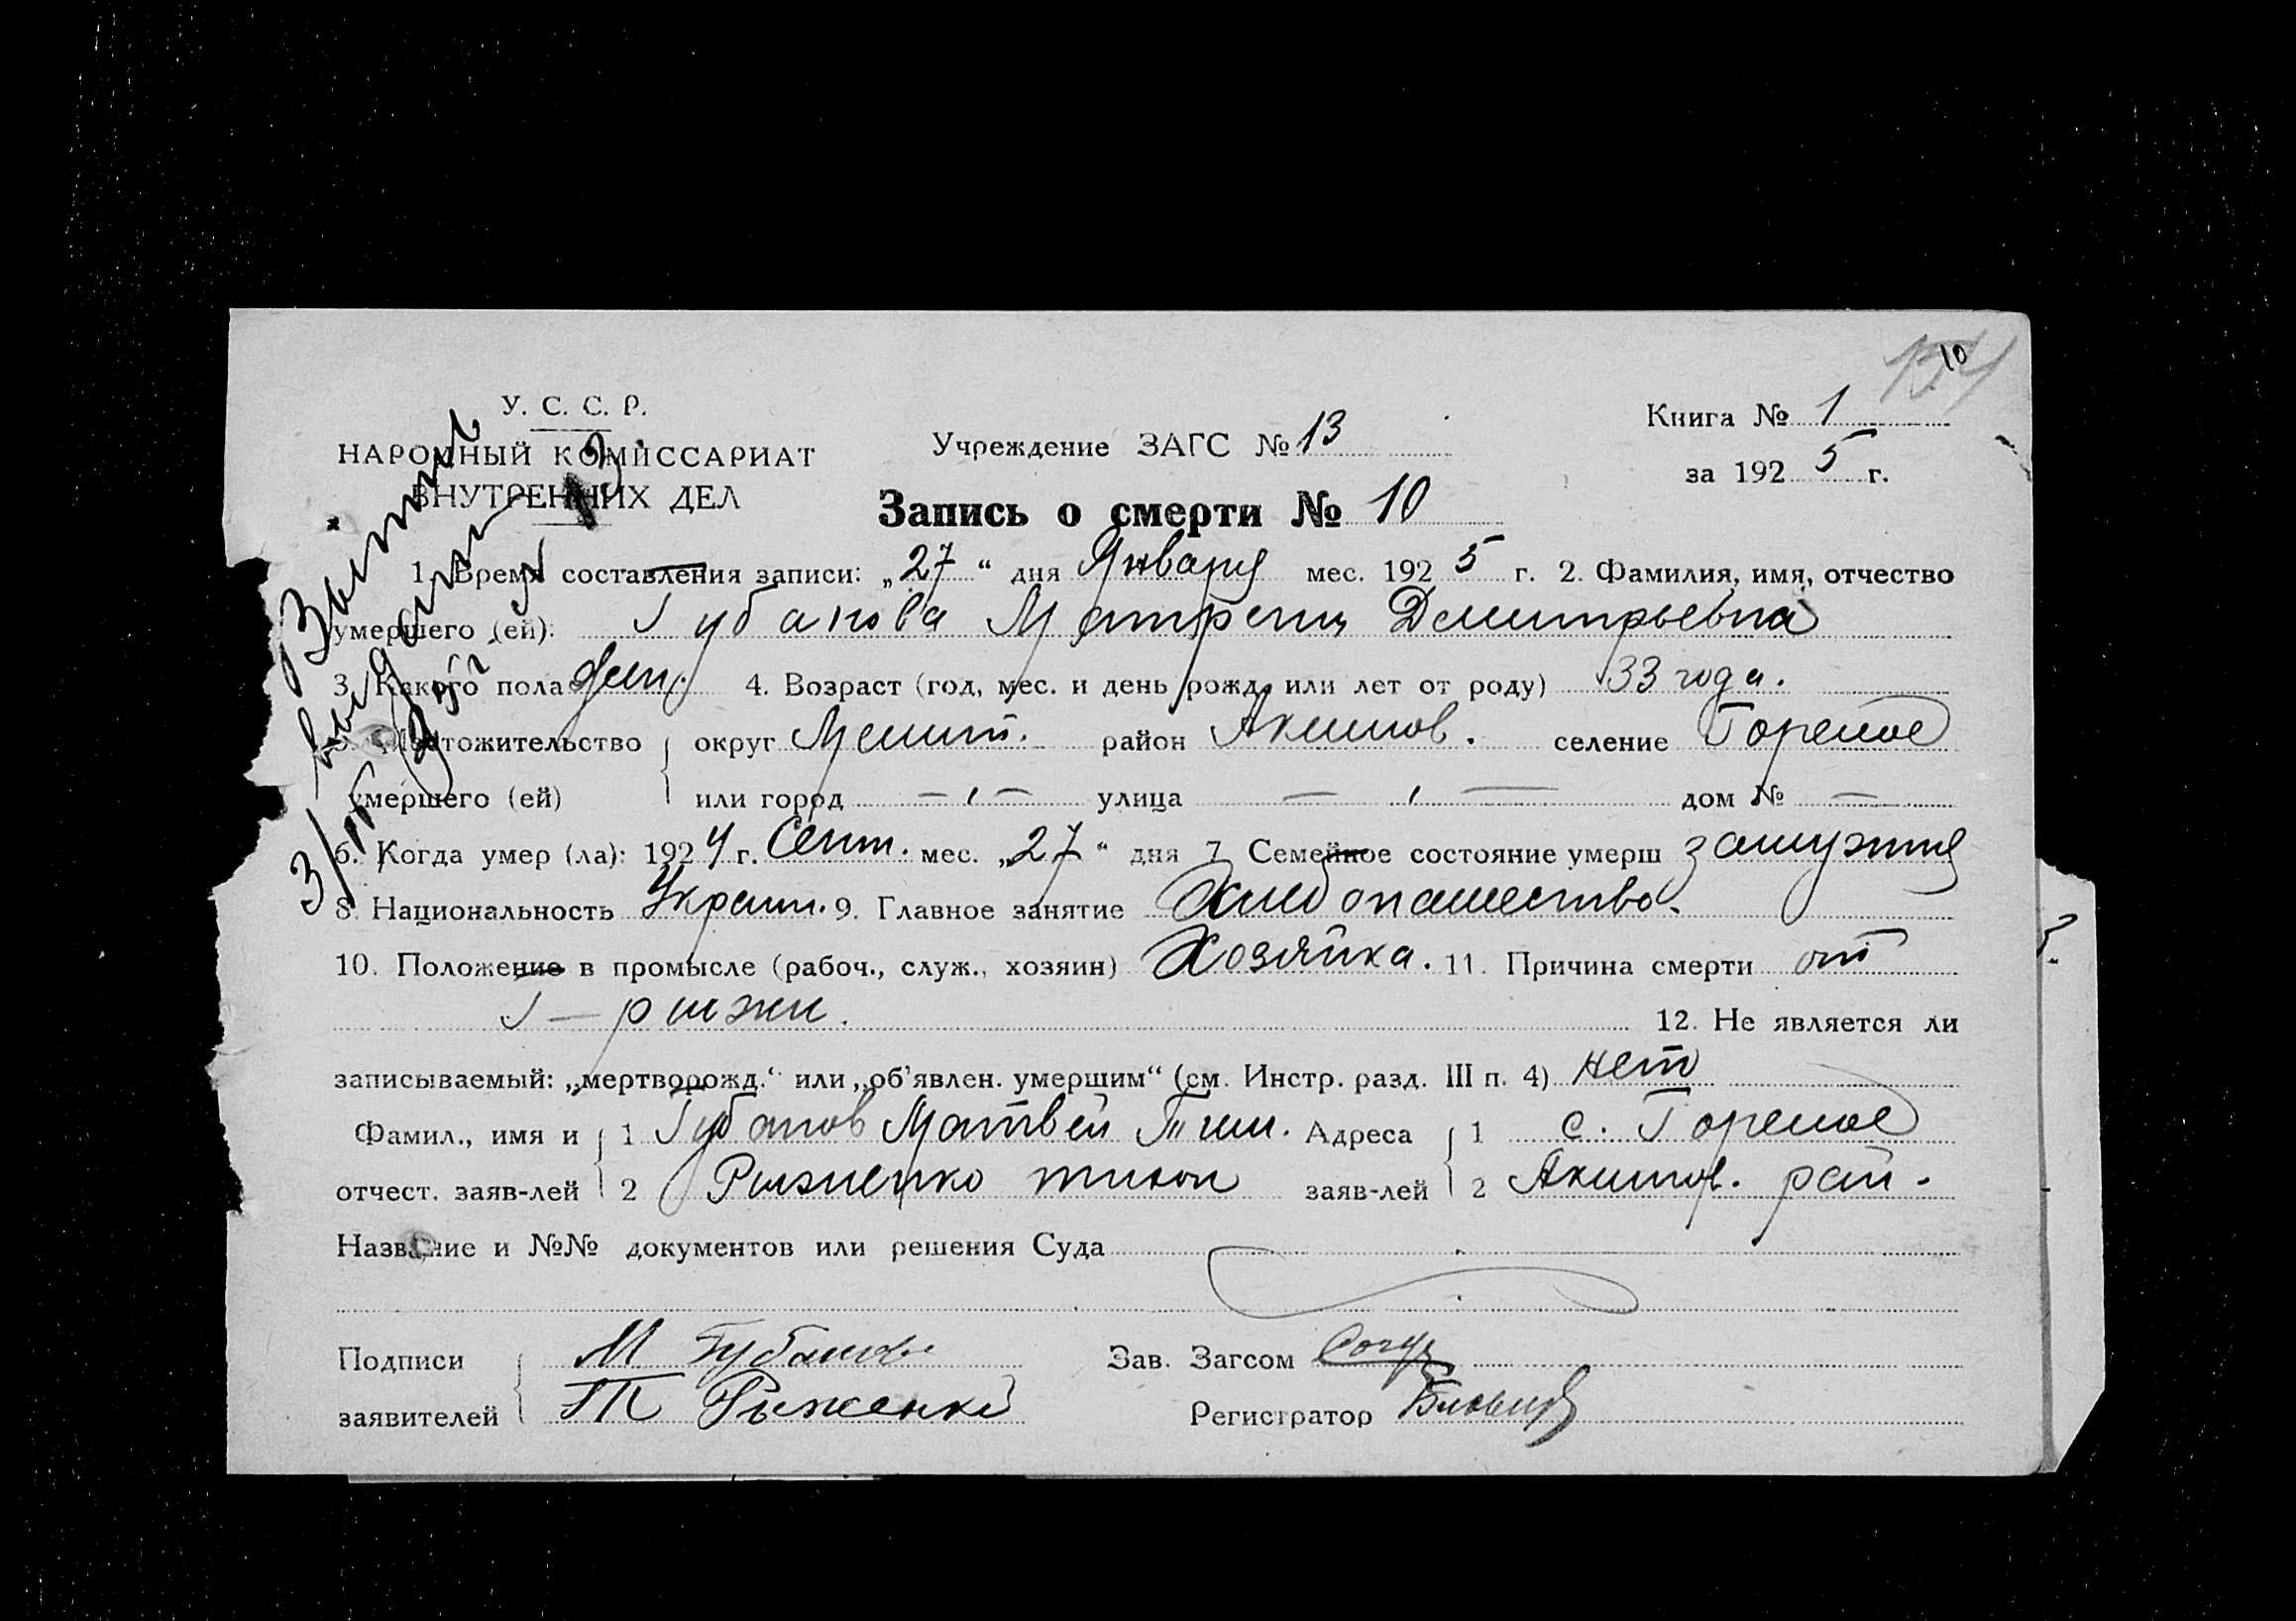 10
У. С. С. Р.
НАРОДНЫЙ КОМИССАРИАТ
ВНУТРЕННИХ ДЕЛ
Учреждение ЗАГС № 13
Книга № 1
за 192 5 г.
Запись о смерти № 10
1. Время составления записи: „27“ дня Января мес. 192 5 г. 2. Фамилия, имя, отчество
умершего (ей): Губанова Матрена Дмитрьевна
3. Какого пола жен. 4. Возраст (год, мес. и день рожд. или лет от роду) 33 года.
5. Местожительство округ Мелит. район Акимов. селение Горелое
умершего (ей) или город — „ — улица — „ — дом № —
6. Когда умер (ла): 192 4 г. Сент. мес. „27“ дня 7. Семейное состояние умерш замужняя
8. Национальность Украин. 9. Главное занятие Хлебопашество.
10. Положение в промысле (рабоч., служ., хозяин) Хозяйка. 11. Причина смерти от
12. Не является ли
записываемый: „мертворожд.“ или „об’явлен. умершим“ (см. Инстр. разд. III п. 4) нет
Фамил., имя и 1 Губанов Матвей Тим. Адреса 1 с. Горелое
отчест. заяв-лей 2 Рыженко тихон заяв-лей 2 Акимов. рай.
Название и №№ документов или решения Суда
Подписи М Губанов Зав. Загсом
заявителей Т Рыженко Регистратор